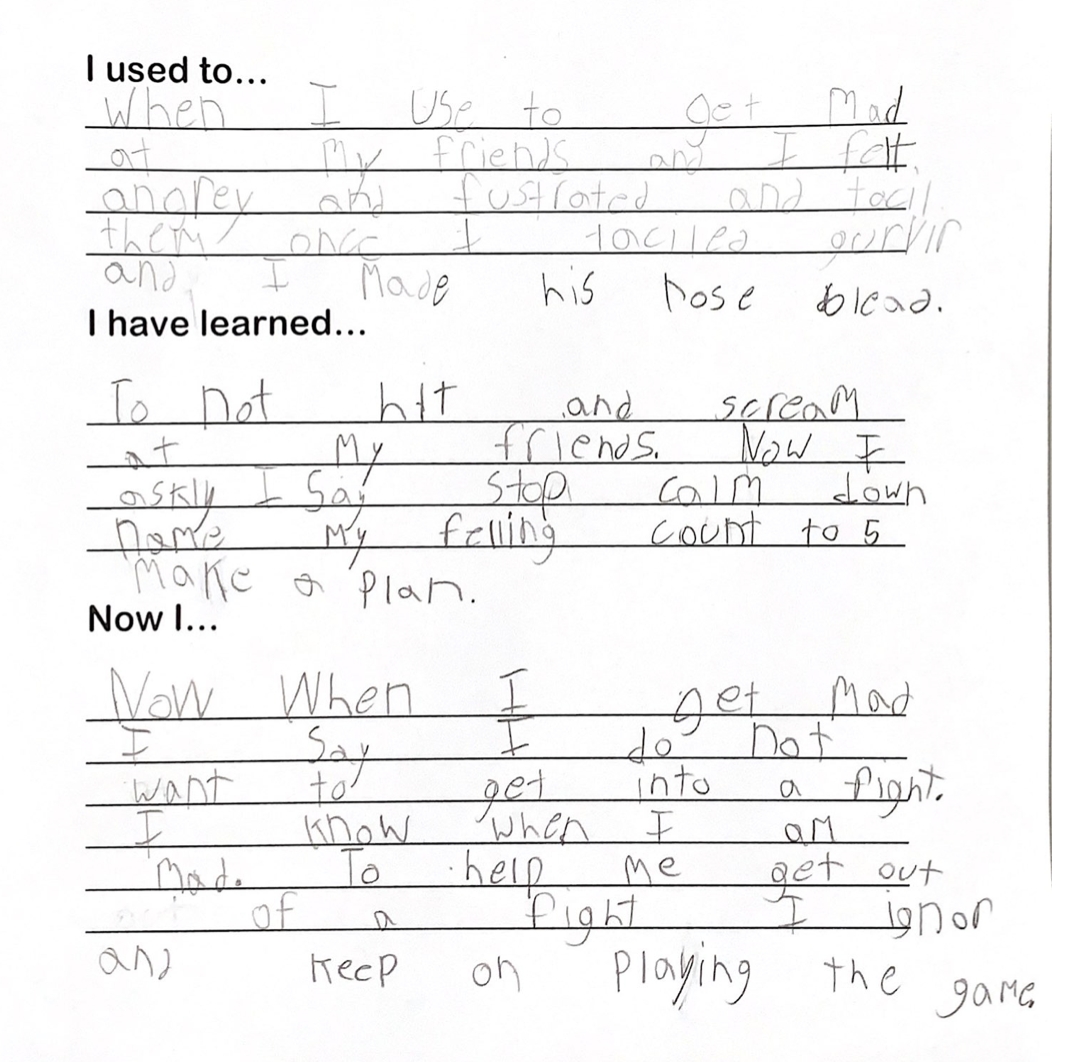 I used to...
When I Use to get Mad
at My friends and I felt
angrey and fustrated and tacll
them once I taciled gurvir
and I Made his nose blead.
I have learned...
To not hit and scream
at My friends. Now I
askly I Say Stop calm down
Name My felling count to 5
Make a plan.
Now I...
Now When I get Mad
I Say I do not
want to get into a fight.
I know when I am
Mad. To help me get out
of a fight I ignor
and keep on playing the game